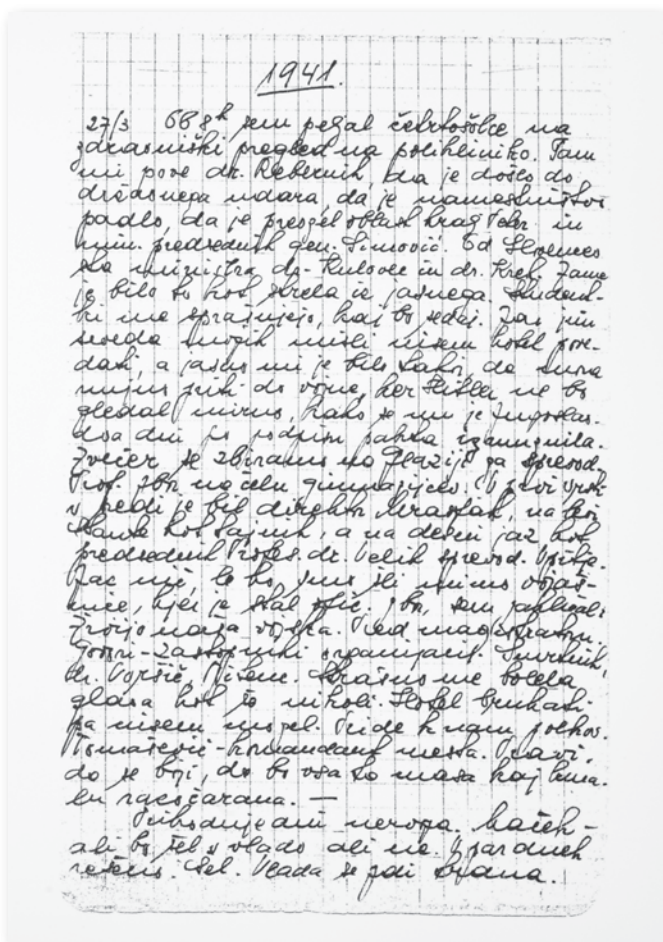 1941.
27/3 Ob 8h sem peljal četrtošolce na
zdravniški pregled na polikliniko. Tam
mi pove dr. Rebernik, da je došlo do
državnega udara, da je namestništvo
padlo, da je prevzel oblast kralj Peter in
min. predsednik gen. Simović. Od Slovencev
sta ministra dr. Kulovec in dr. Krek. Zame
je bilo to kot strela iz jasnega. Študent-
ki me sprašujejo, kaj bo sedaj. Jaz jim
seveda svojih misli nisem hotel pove-
dati, a jasno mi je bilo takoj, da mora
nujno priti do vojne, ker Hitler ne bo
gledal mirno, kako se mu je Jugoslav.
dva dni po podpisu pakta izmuznila.
Zvečer se zbiramo na Glaziji za sprevod.
Prof. zbor na čelu gimnazijcev. V prvi vrsti
v sredi je bil direktor, na levi
kot tajnik, a na desni jaz kot
predsednik Profes. dr. Velik sprevod.
nič, le ko smo šli mimo vojaš-
nice, kjer je stal ofic. zbor, sem zaklical:
Živijo naša vojska. Pred magistratom
govori-zastopniki organizacij.
dr. Vršič, Strašno me bolela
glava kot še nikoli. Hotel
pa nisem mogel. Pride k nam polkov.
Tomašević-komandant mesta. Pravi,
da se boji, da bo vsa ta masa kaj kma-
lu razočarana. —
Prihodnje dni nervoza. Maček -
ali bo šel v vlado ali ne. V par dneh
rešeno. Šel. Vlada se zdi